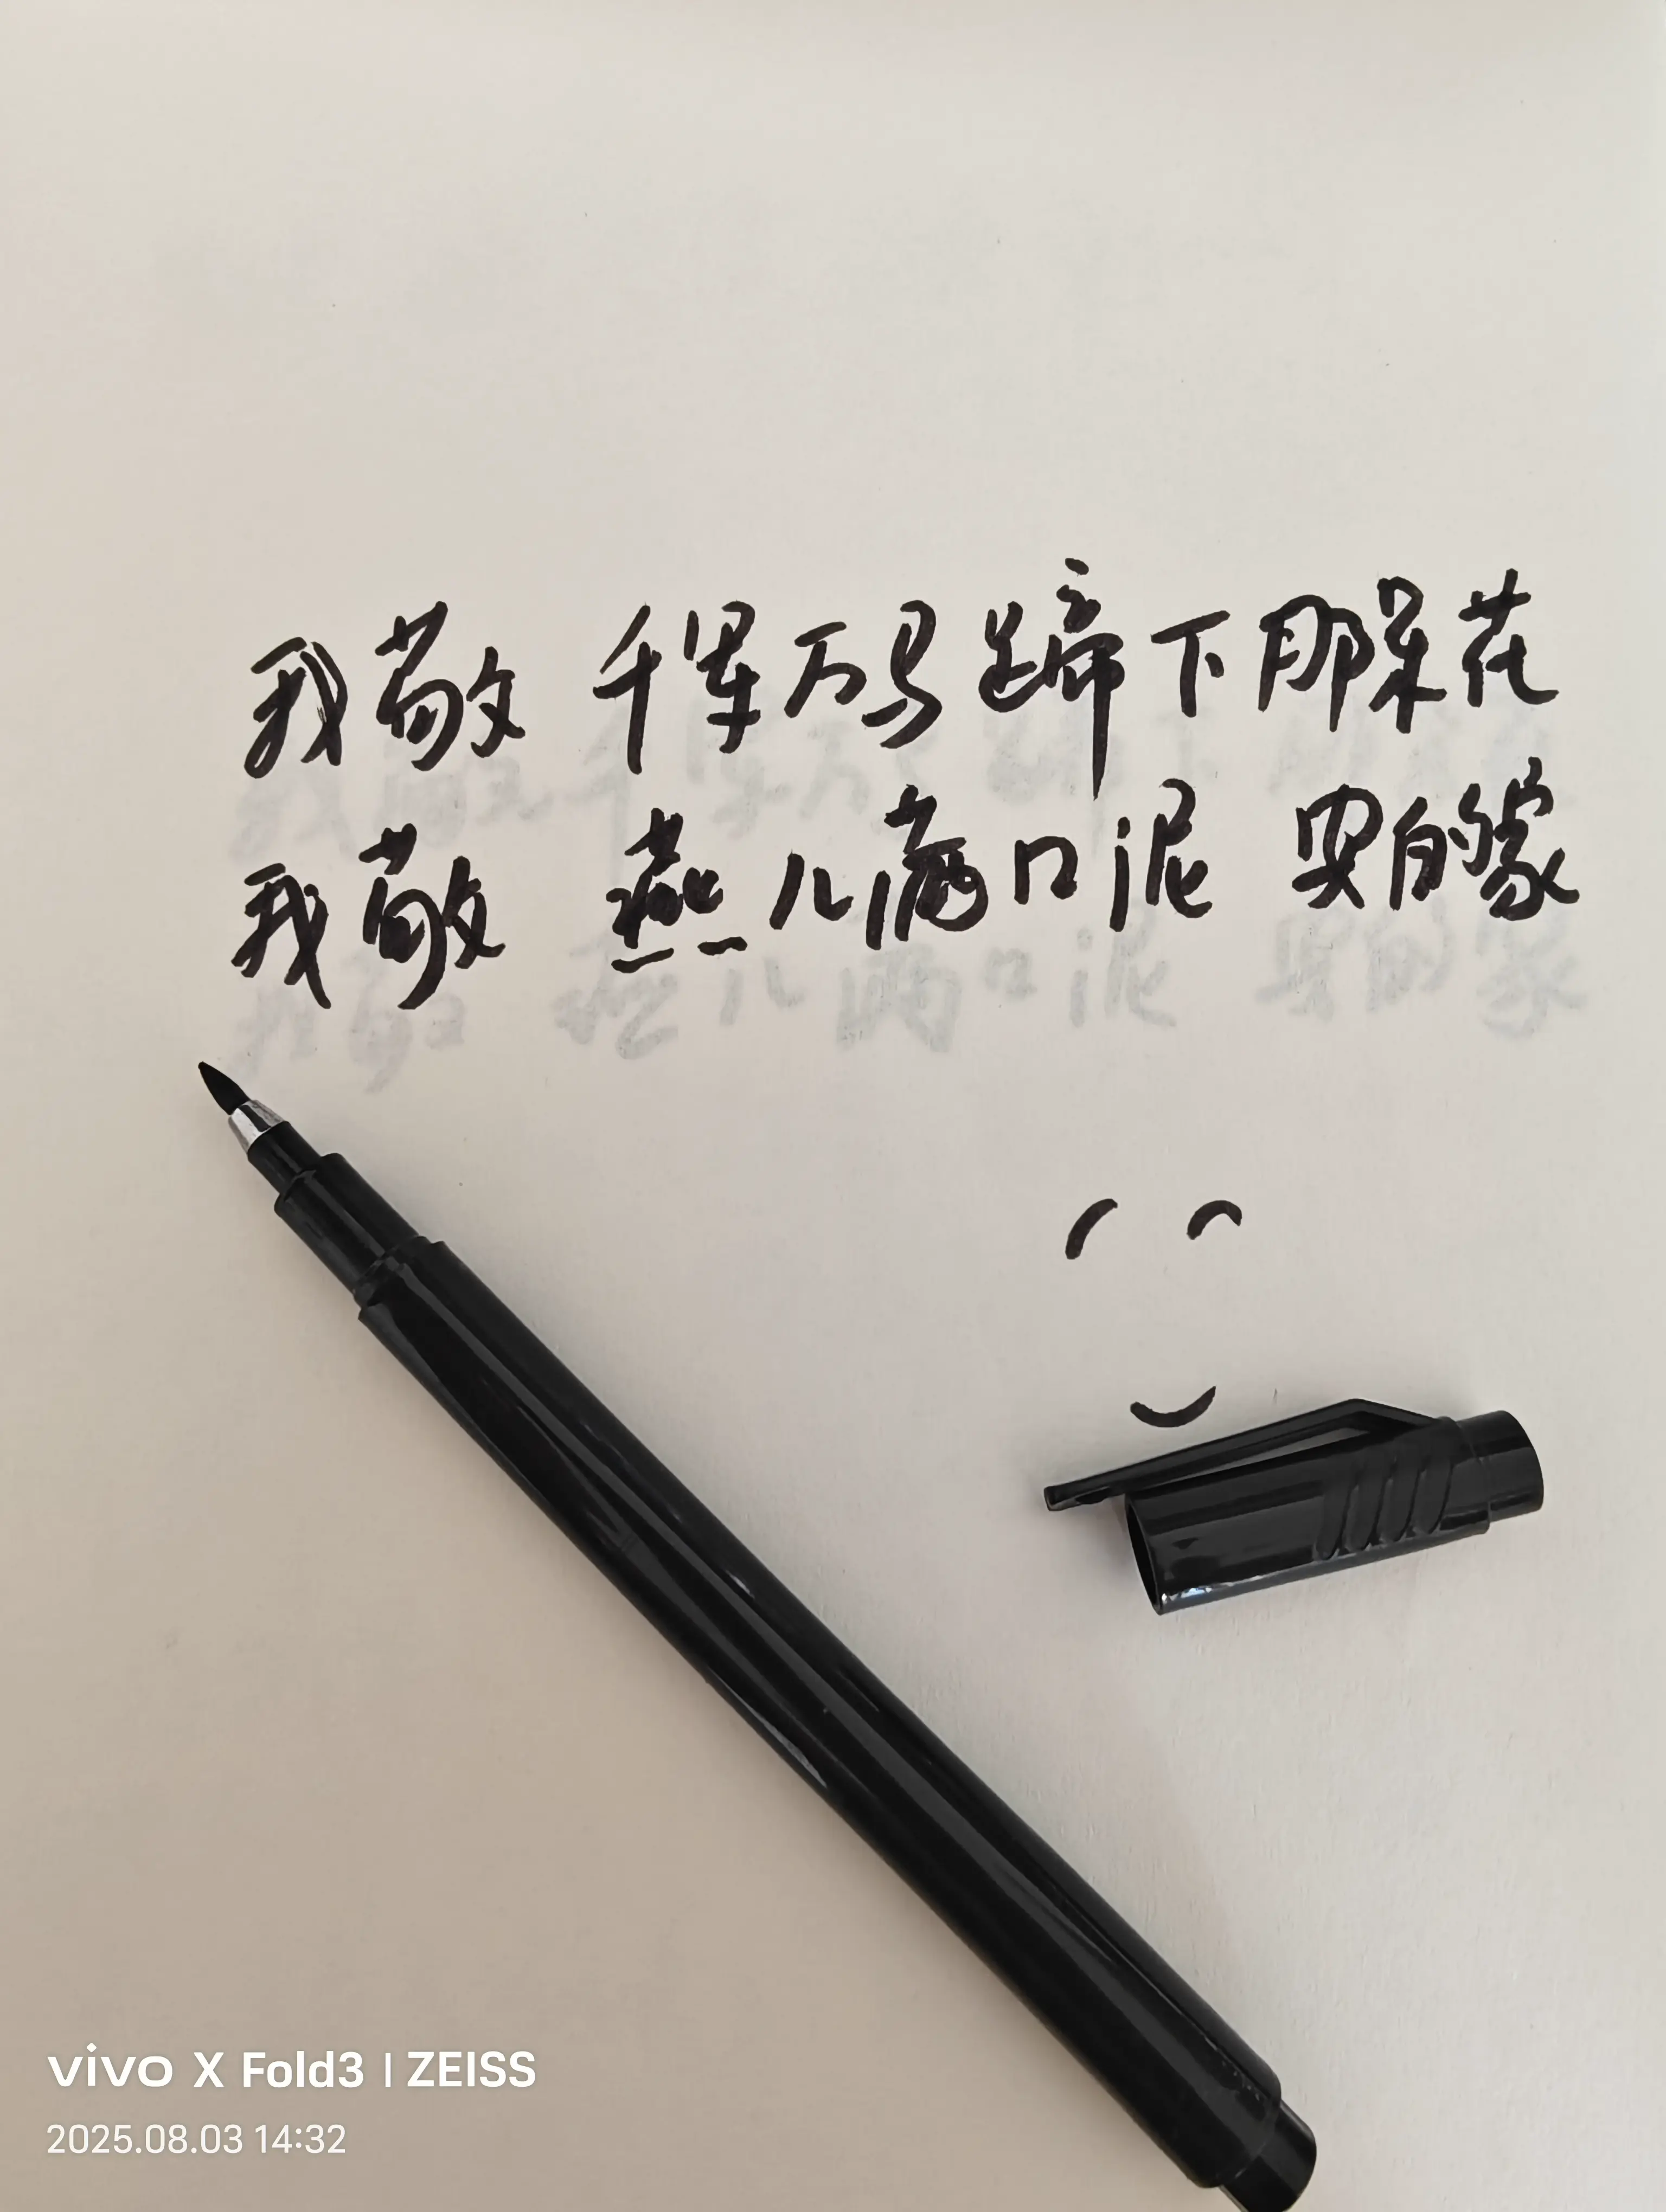 我敬 千军万马蹄下那朵花
我敬 燕儿满口泥 安的家
vivo X Fold3 | ZEISS
2025.08.03 14:32